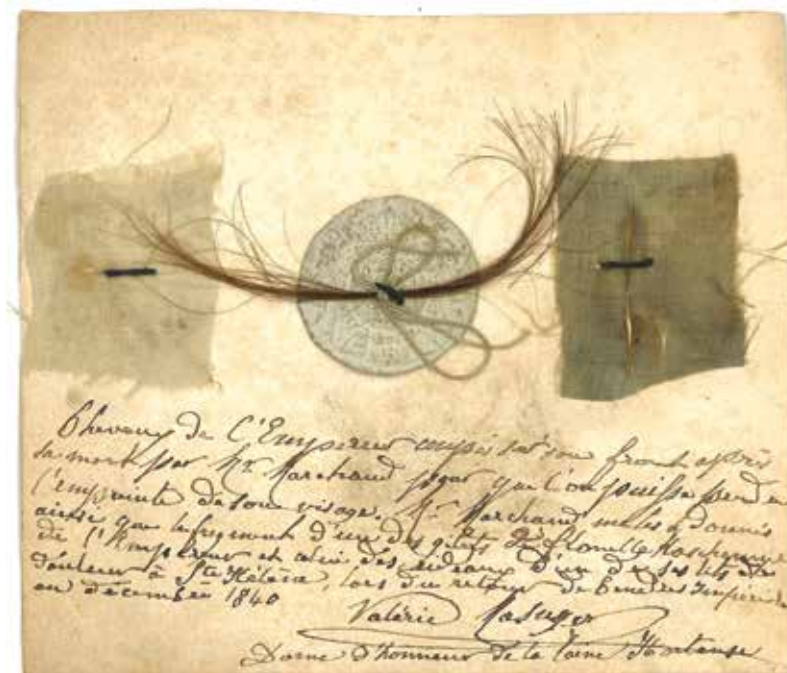 Cheveux de L'Empereur coupés sur son front après
sa mort par Mr. Marchand pour que l'on puisse prendre
l'empreinte de son visage. Mr. Marchand me les a donnés
ainsi que le fragment d'un des gilets de
de l'Empereur et celui des rideaux d'un de ses lits de
douleur à Ste Hélène, lors du retour de
en décembre 1840
Valérie Masuyer
Dame d'honneur de la Reine Hortense